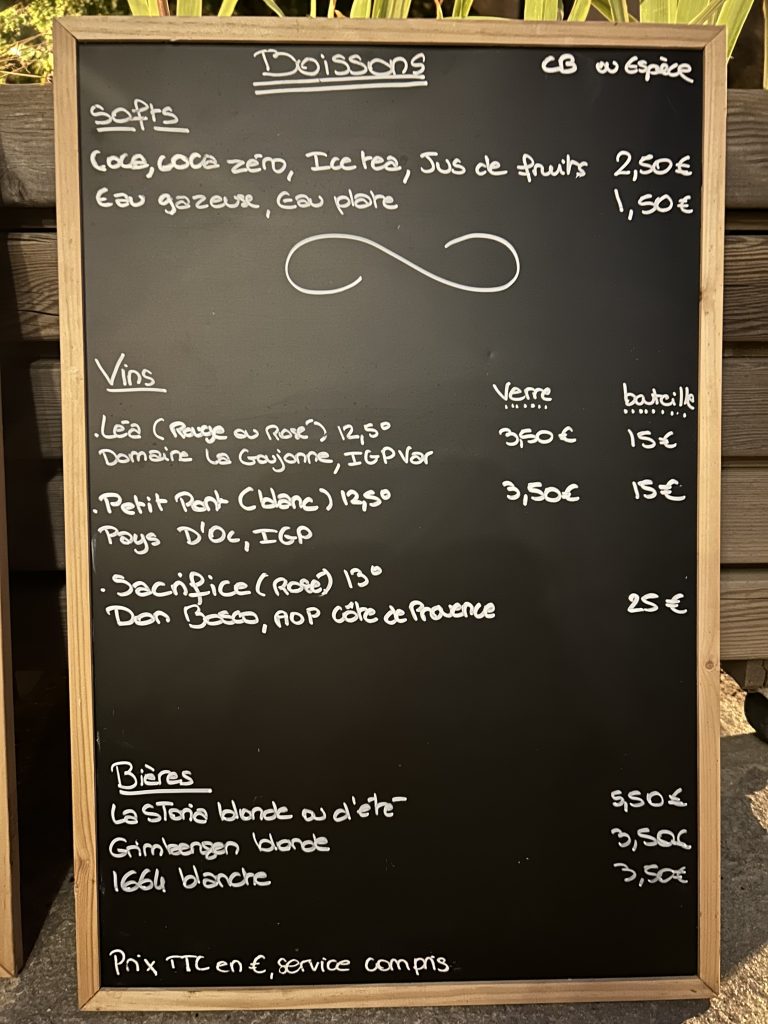 Boissons CB ou Espèce
Softs
Coca, coca zéro, Ice tea, Jus de fruits 2,50€
Eau gazeuse, Eau plate 1,50€
Vins Verre bouteille
. Léa (Rouge ou Rosé) 12,5° 3,50€ 15€
Domaine La Goujonne, IGP Var
. Petit Pont (blanc) 12,5° 3,50€ 15€
Pays D'Oc, IGP
. Sacrifice (Rosé) 13°
Don Bosco, AOP Côte de Provence 25€
Bières
La SToria blonde ou d'été 5,50€
Grimbengen blonde 3,50€
1664 blanche 3,50€
Prix TTC en €, service compris